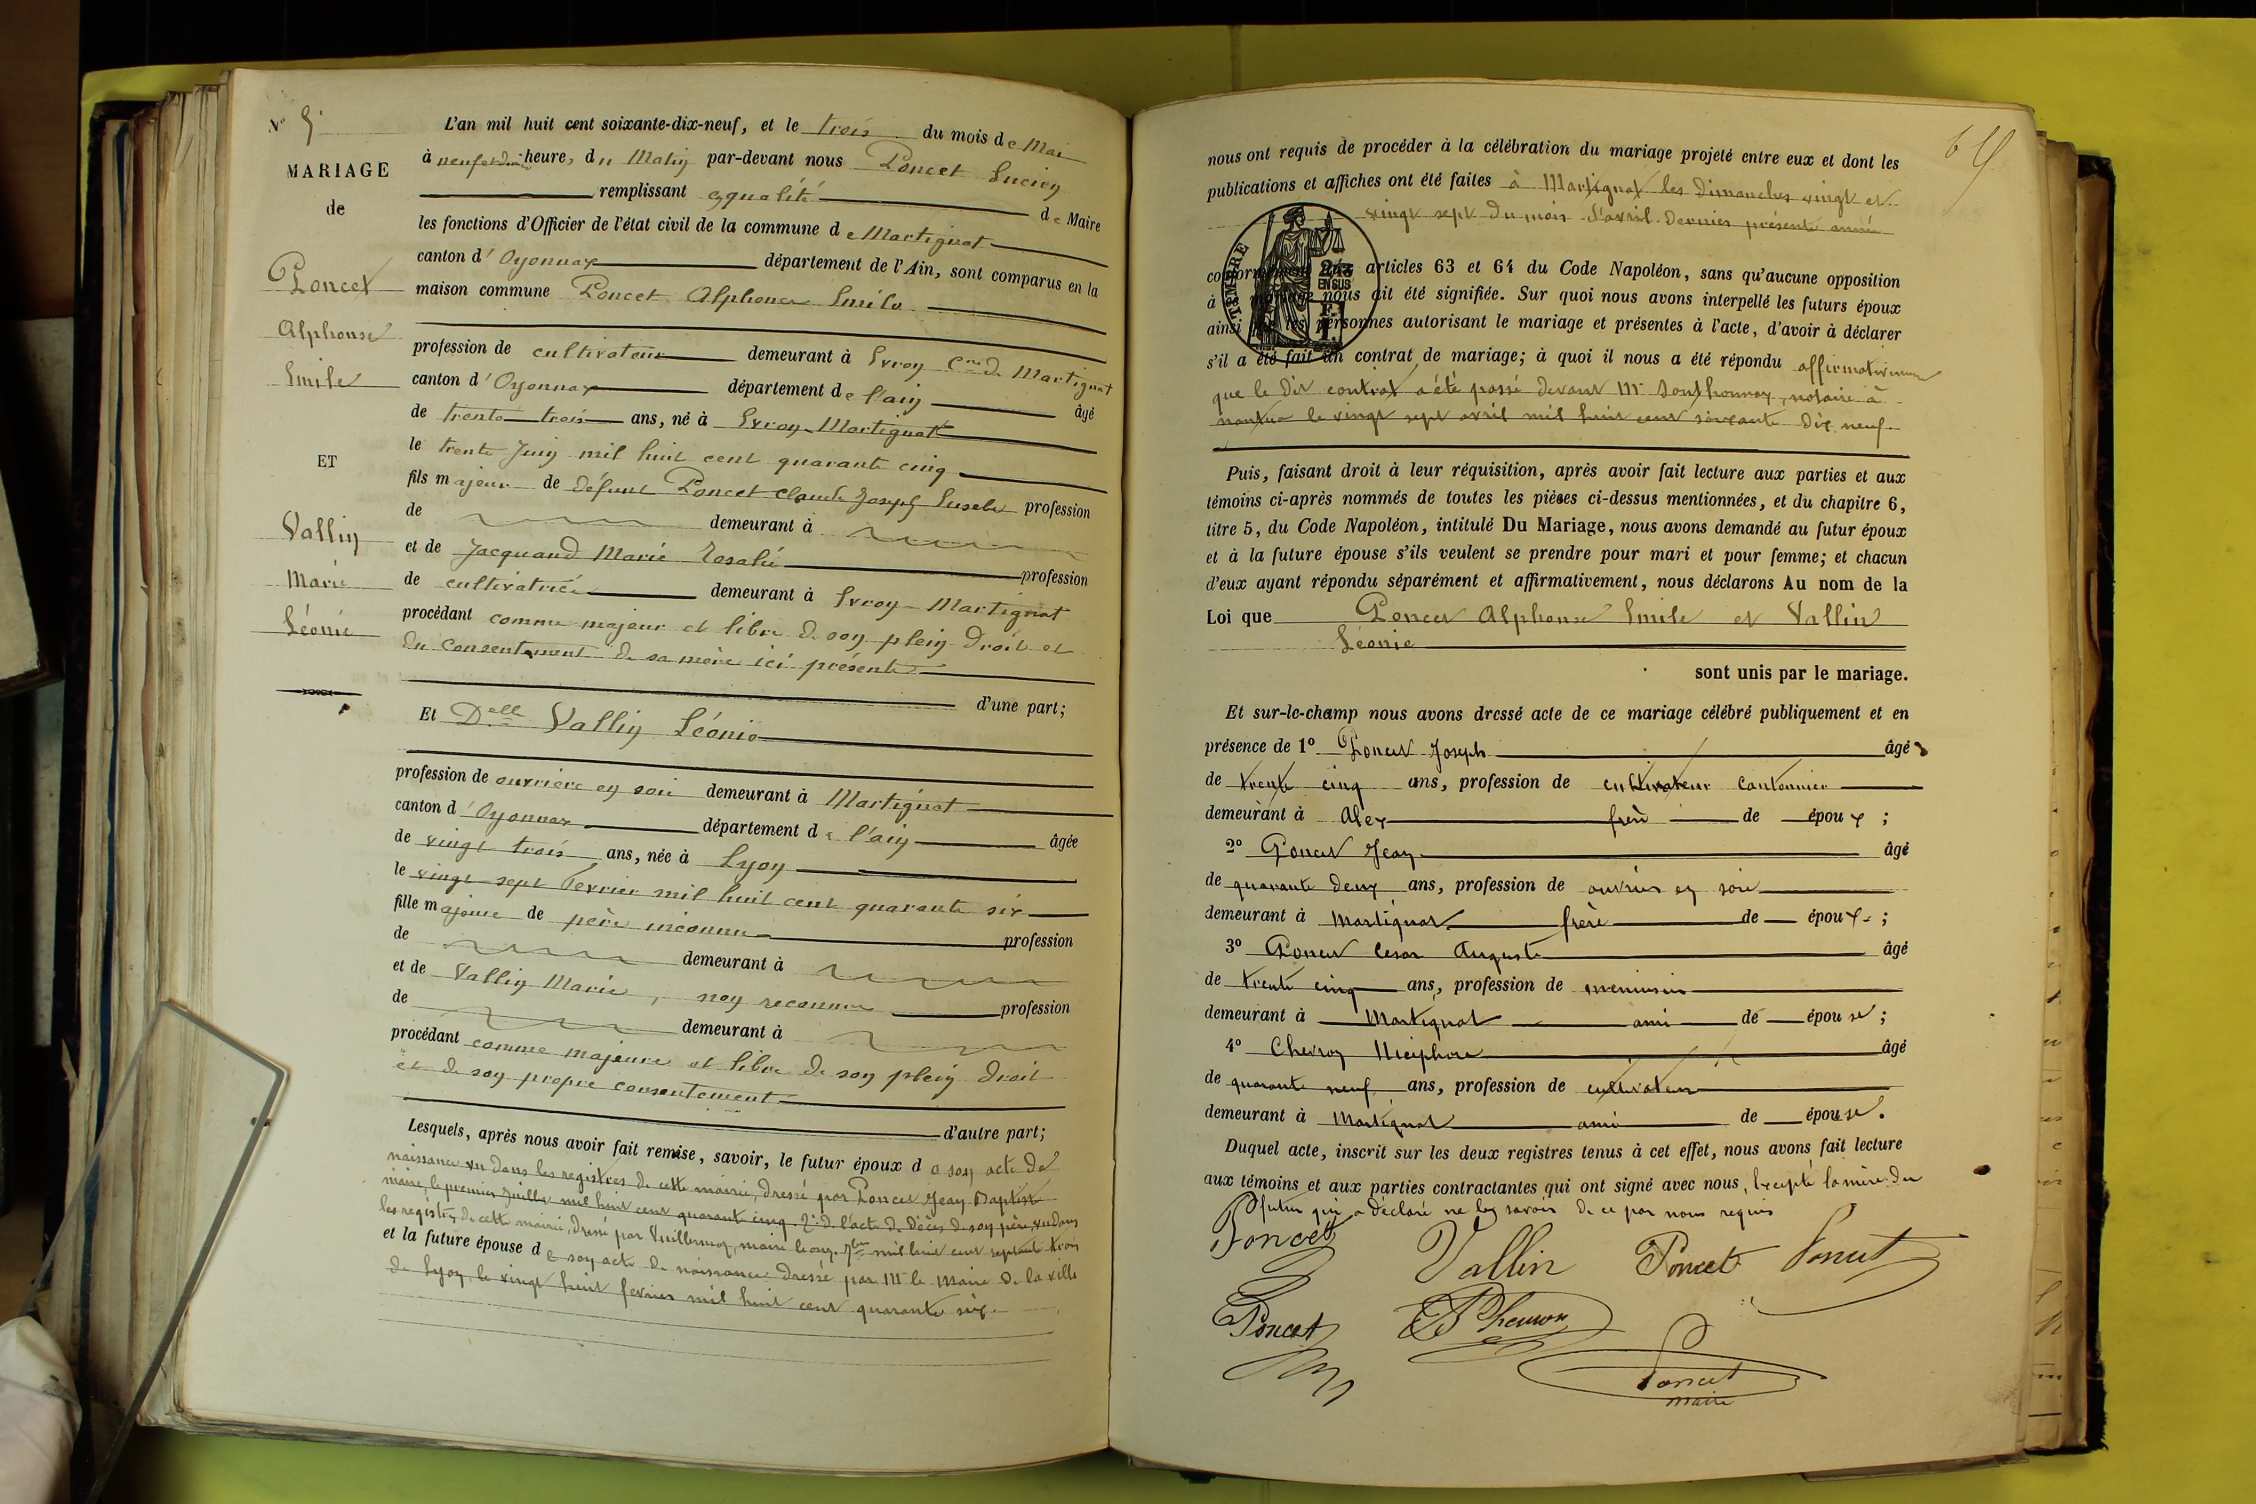 N° 5
MARIAGE
de
Poncet
Alphonse
Emile
ET
Vallin
Marie
Léonie
L'an mil huit cent soixante-dix-neuf, et le trois du mois de Mai
à neuf et demi heure, du Matin par-devant nous Poncet Lucien
remplissant en qualité de Maire
les fonctions d'Officier de l'état civil de la commune de Martignat
canton d'Oyonnax département de l'Ain, sont comparus en la
maison commune Poncet Alphonse Emile
profession de cultivateur demeurant à Evron Cne de Martignat
canton d'Oyonnax département de l'ain âgé
de trente-trois ans, né à Evron-Martignat
le trente Juin mil huit cent quarante cinq
fils majeur de défunt Poncet Claude Joseph Eusebe profession
de demeurant à
et de Jacquand Marie Rosalie profession
de cultivatrice demeurant à Evron-Martignat
procédant comme majeur et libre de son plein droit et
du consentement de sa mère ici présente
d'une part;
Et Delle Vallin Léonie
profession de ouvrière en soie demeurant à Martignat
canton d'Oyonnax département de l'ain âgée
de vingt trois ans, née à Lyon
le vingt sept Fevrier mil huit cent quarante six
fille majeure de père inconnu profession
de demeurant à
et de Vallin Marie, non reconnue profession
de demeurant à
procédant comme majeure et libre de son plein droit
et de son propre consentement
d'autre part;
Lesquels, après nous avoir fait remise, savoir, le futur époux d e son acte de
naissance vu dans les registres de cette mairie, dressé par Poncet Jean Baptiste
maire, le premier Juillet mil huit cent quarante cinq. 2° de l'acte de décès de son père, vu dans
les registres de cette mairie, dressé par Vuillermoz, maire le onze 7bre mil huit cent septante trois
et la future épouse de son acte de naissance dressé par Mr le Maire de la ville
de Lyon, le vingt huit fevrier mil huit cent quarante six.
64
nous ont requis de procéder à la célébration du mariage projeté entre eux et dont les
publications et affiches ont été faites à Martignat les dimanches vingt et
vingt sept du mois d'avril dernier présente année
TIMBRE
2/10
EN SUS
F.
1.
conformément aux articles 63 et 64 du Code Napoléon, sans qu'aucune opposition
à ce mariage nous ait été signifiée. Sur quoi nous avons interpellé les futurs époux
ainsi que les personnes autorisant le mariage et présentes à l'acte, d'avoir à déclarer
s'il a été fait un contrat de mariage; à quoi il nous a été répondu affirmativement
que le dit contrat a été passé devant Mr Southonnax, notaire à
nantua le vingt sept avril mil huit cent soixante dix neuf.
Puis, faisant droit à leur réquisition, après avoir fait lecture aux parties et aux
témoins ci-après nommés de toutes les pièces ci-dessus mentionnées, et du chapitre 6,
titre 5, du Code Napoléon, intitulé Du Mariage, nous avons demandé au futur époux
et à la future épouse s'ils veulent se prendre pour mari et pour femme; et chacun
d'eux ayant répondu séparément et affirmativement, nous déclarons Au nom de la
Loi que Poncet Alphonse Emile et Vallin
Léonie
sont unis par le mariage.
Et sur-le-champ nous avons dressé acte de ce mariage célébré publiquement et en
présence de 1° Poncet Joseph âgé
de trente cinq ans, profession de cultivateur cantonnier
demeurant à Alex frère de époux;
2° Poncet Jean âgé
de quarante deux ans, profession de ouvrier en soie
demeurant à Martignat frère de époux;
3° Poncet Cesar Auguste âgé
de trente cinq ans, profession de menuisier
demeurant à Martignat ami de épouse;
4° Chevron Niciphore âgé
de quarante neuf ans, profession de cultivateur
demeurant à Martignat ami de épouse.
Duquel acte, inscrit sur les deux registres tenus à cet effet, nous avons fait lecture
aux témoins et aux parties contractantes qui ont signé avec nous, Excepté la mère du
futur qui a déclaré ne le savoir de ce par nous requis
Poncet Vallin Poncet Poncet
Poncet Chevron
Poncet
maire